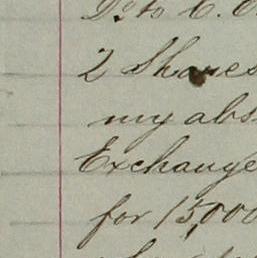 Do to C. 
2 Shares
my abs
Exchange
for 15,000